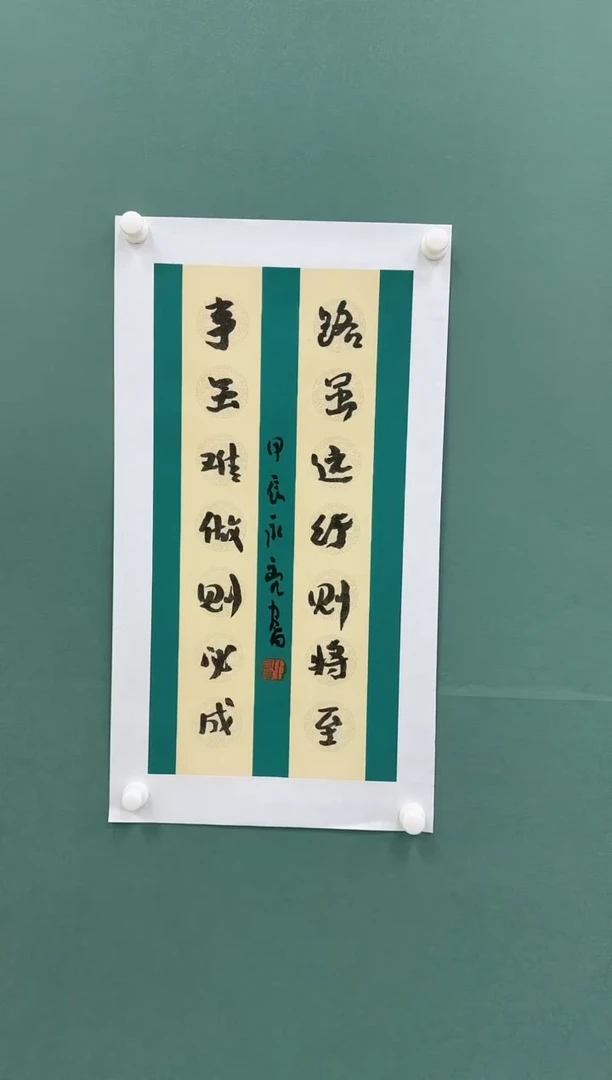 路虽远行则将至
事虽难做则必成
甲辰永亮书